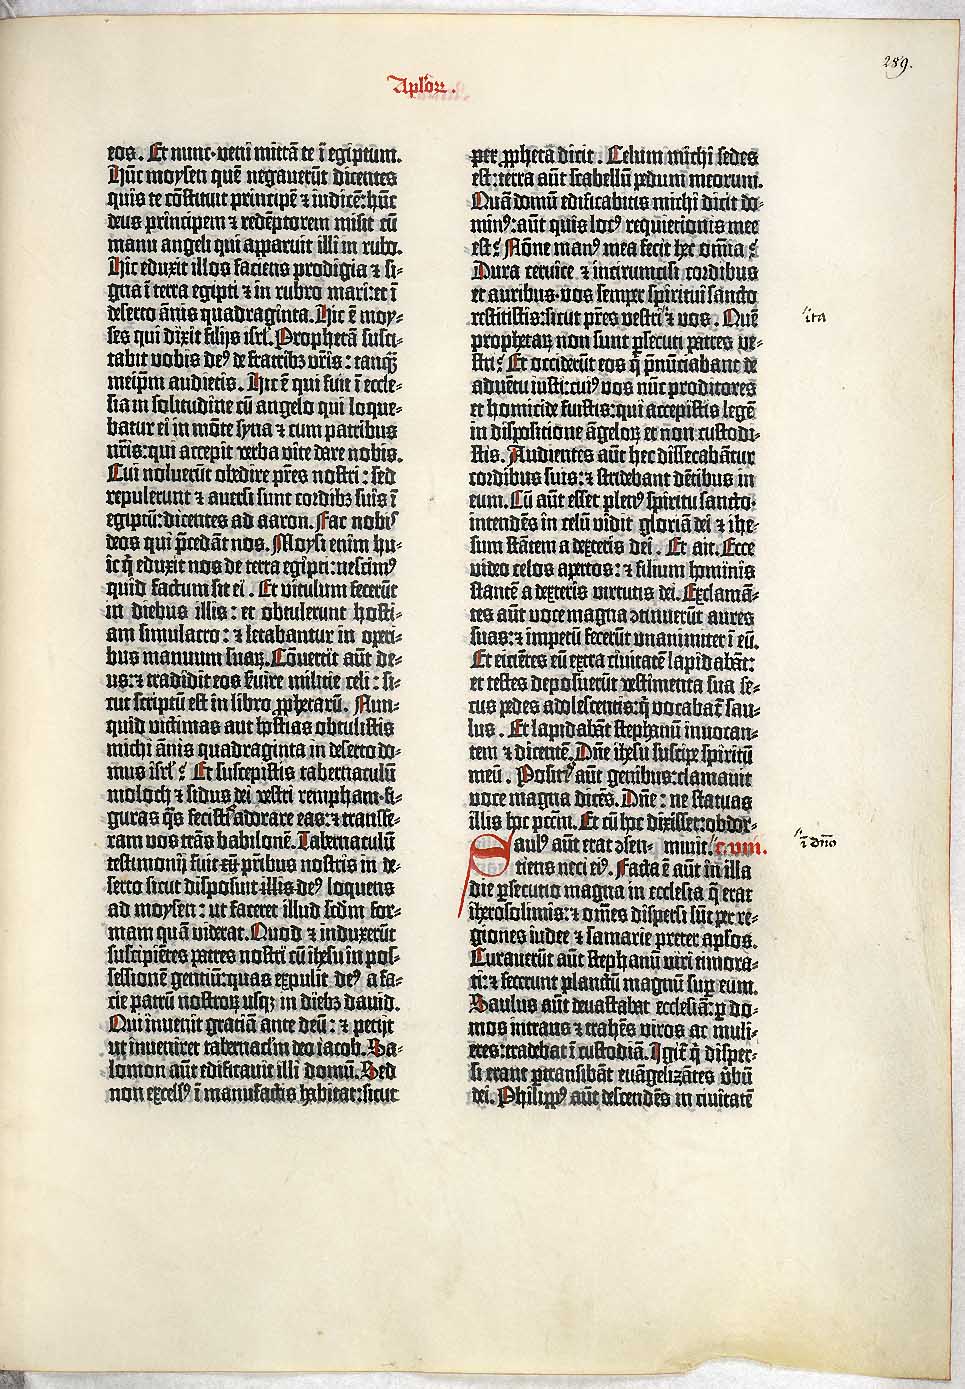 289.
Apl'oꝝ.
eos. Et nunc· veni mittā te ī egiptum.
Hūc moysen quē negaverūt dicentes
quis te cōstituit principē ⁊ iudicē: hūc
deus principem ⁊ redēptorem misit cū
manu angeli qui apparuit illi in rubo.
Hic eduxit illos faciens prodigia ⁊ si-
gna ī terra egipti ⁊ in rubro mari: et ī
deserto ānis quadraginta. Hic ē moy-
ses qui dixit filijs isrl'. Prophetā susci-
tabit vobis deꝰ de fratribꝫ vr̄is: tanqꝫ
meip̄m audietis. Hic ē qui fuit ī eccle-
sia in solitudine cū angelo qui loque-
batur ei in mōte syna ⁊ cum patribus
nr̄is: qui accepit verba vite dare nobis.
Cui noluerūt obedire pr̄es nostri: sed
repulerunt ⁊ aversi sunt cordibꝫ suis ī
egiptū: dicentes ad aaron. Fac nobis
deos qui p̄cedāt nos. Moysi enim hu-
ic q̄ eduxit nos de terra egipti: nescimꝰ
quid factum sit ei. Et vitulum fecerūt
in diebus illis: et obtulerunt hosti-
am simulacro: ⁊ letabantur in operi-
bus manuum suaꝝ. Cōvertit aūt de-
us: ⁊ tradidit eos s̄uire militie celi: si-
cut scriptū est in libro ꝓphetarū. Nun-
quid victimas aut hostias obtulistis
michi ānis quadraginta in deserto do-
mus isrl'? Et suscepistis tabernaculū
moloch ⁊ sidus dei vestri rempham· fi-
guras q̄s fecistis adorare eas: ⁊ transfe-
ram vos trās babilonē. Tabernaculū
testimonij fuit cū pr̄ibus nostris in de-
serto sicut disposuit illis deꝰ loquens
ad moysen: ut faceret illud scdm for-
mam quā viderat. Quod ⁊ induxerūt
suscipiētes patres nostri cū ihesu in pos-
sessionē gentiū: quas expulit deꝰ a fa-
cie patrū nostroꝝ usqꝫ in diebꝫ david.
Qui invenit gratiā ante deū: ⁊ petijt
ut inveniret tabernaclm deo iacob. Sa-
lomon aūt edificavit illi domū. Sed
non excelsꝰ ī manufactis habitat: sicut
per ꝓphetā dicit. Celum michi sedes
est: terra aūt scabellū pedum meorum.
Quā domū edificabitis michi dicit do-
minꝰ: aūt quis locꝰ requietionis mee
est? Nōne manꝰ mea fecit hec om̄ia?
Dura cervice ⁊ incircuncisi cordibus
et auribus· vos semper spiritui sancto
restitistis: sicut pr̄es vestri ⁊ vos. Quē
prophetaꝝ non sunt ꝑsecuti patres ve-
stri? Et occiderūt eos q̄ p̄nūciabant de
advētu iusti: cuiꝰ vos nūc proditores
et homicide fuistis: qui accepistis legē
in dispositione āgeloꝝ et non custodi-
stis. Audientes aūt hec dissecabātur
cordibus suis: ⁊ stridebant dētibus in
eum. Cū aūt esset plenꝰ spiritu sancto·
intendēs in celū vidit gloriā dei ⁊ ihe-
sum stātem a dexteris dei. Et ait. Ecce
video celos apertos: ⁊ filium hominis
stantē a dexteris virtutis dei. Exclamā-
tes aūt voce magna ɔtinuerūt aures
suas: ⁊ impetū fecerūt unanimiter ī eū.
Et eicietes eū extra civitatē lapidabāt:
et testes deposuerūt vestimenta sua se-
cus pedes adolescentis: q̄ vocabat̄ sau-
lus. Et lapidabāt stephanū invocan-
tem ⁊ dicentē. Dn̄e ihesu suscipe spiritū
meū. Positꝭ aūt genibus: clamavit
voce magna dicēs. Dn̄e: ne statuas
illis hoc pctm̄. Et cū hoc dixisset: obdor-
mivit. c. viii.
Saulꝰ aūt erat ɔsen-
tiens neci eiꝰ. Facta ē aūt in illa
die ꝑsecutio magna in ecclesia q̄ erat
iherosolimis: ⁊ om̄es dispersi sūt per re-
giones iudee ⁊ samarie preter apl'os.
Curaverūt aūt stephanū viri timora-
ti: ⁊ fecerunt planctū magnū sup̄ eum.
Saulus aūt devastabat ecclesiā: ꝑ do-
mos intrans ⁊ trahēs viros ac muli-
eres: tradebat ī custodiā. Igit̄ q̄ disper-
si erant ꝑtransibāt euāgelizātes v̄bū
dei. Philippꝰ aūt descendēs in civitatē
ita
ī dn̄o